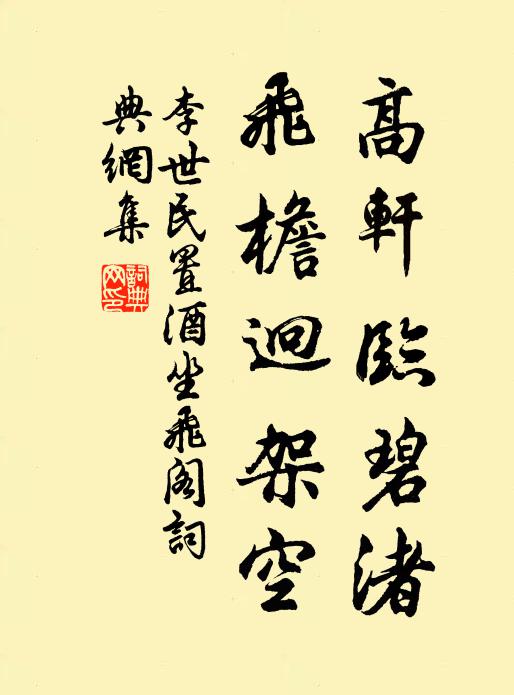 高軒臨碧渚
飛檐迥架空
李世民置酒坐飛閣詞
典網集
詞典
网印